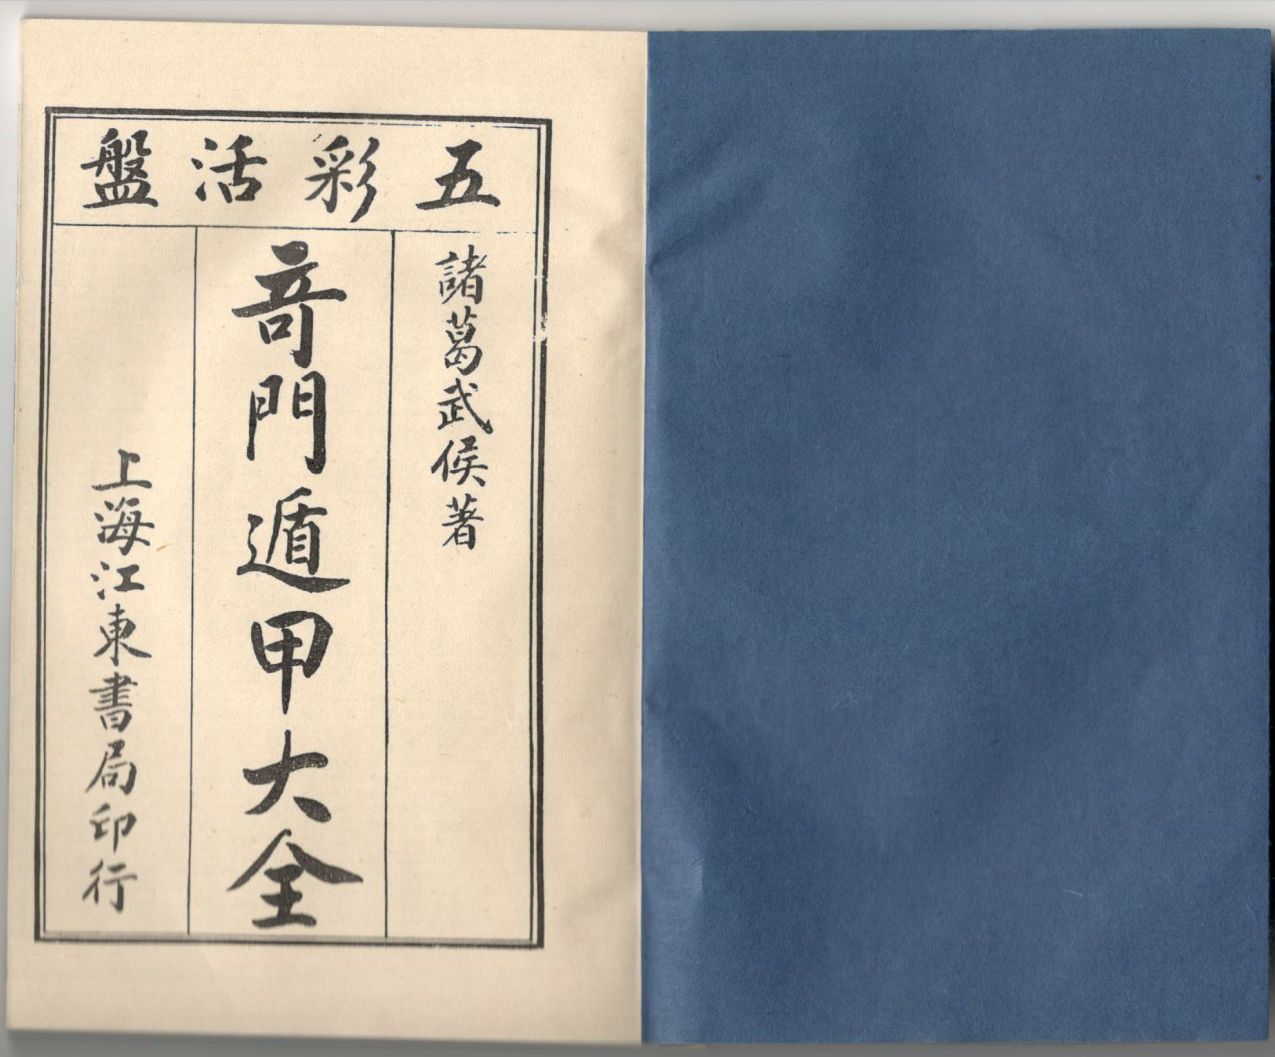 五彩活盤
諸葛武侯著
竒門遁甲大全
上海江東書局印行